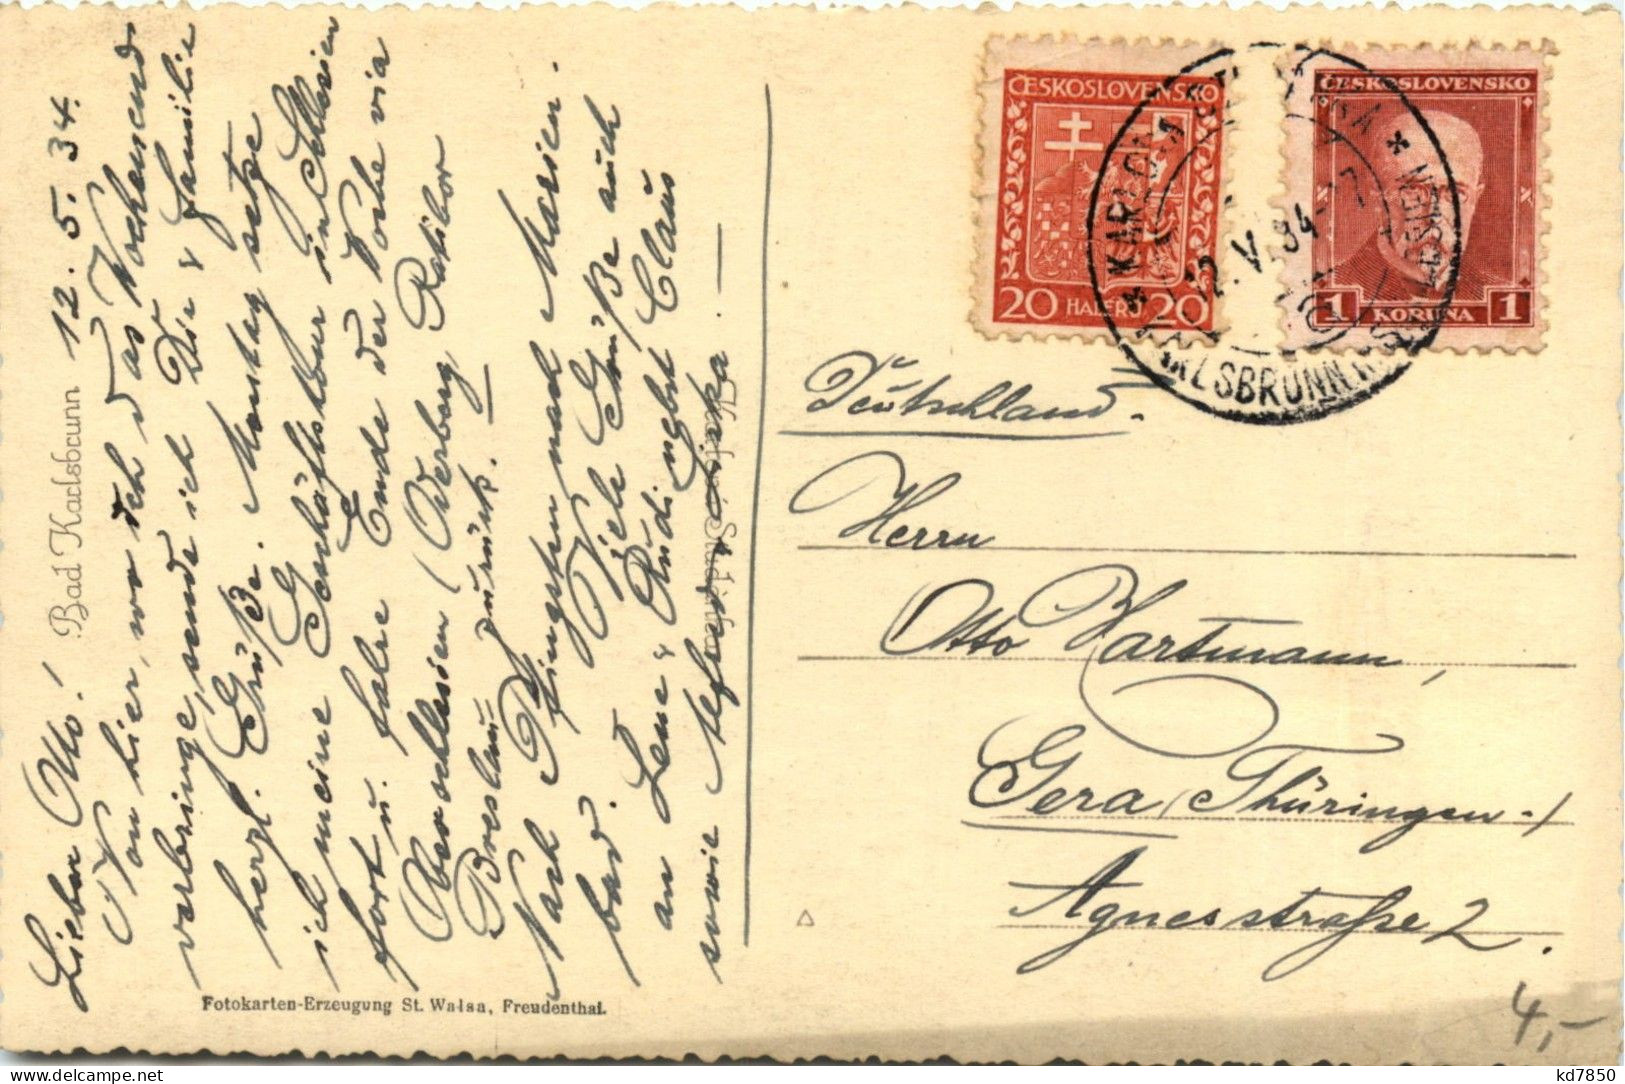 Bad Karlsbrunn 12.5.34.
Lieber Otto!
Von hier, wo ich das Wochenend
verbringe, sende ich Dir & Familie
herzl. Grüße. Montag setze
ich meine Geschäftstour in Schlesien
fort u. fahre Ende der Woche via
Oberschlesien (Oderberg Ratibor
Breslau zurück.
Nach Pfingsten nach Marien-
bad. Viele Grüße auch
an Lene & Rudi nebst Claus
sowie
Fotokarten-Erzeugung St. Walsa, Freudenthal.
ČESKOSLOVENSKO
20 HALÉŘŮ 20
ČESKOSLOVENSKO
1 KORUNA 1
KARLSBRUNN
Deutschland.
Herrn
Otto Hartmann,
Gera (Thüringen-)
Agnesstraße 2.
4,-
kd7850